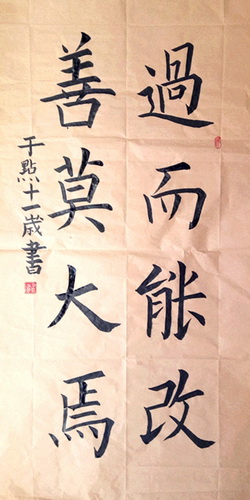 過而能改
善莫大焉
于點十一歲書